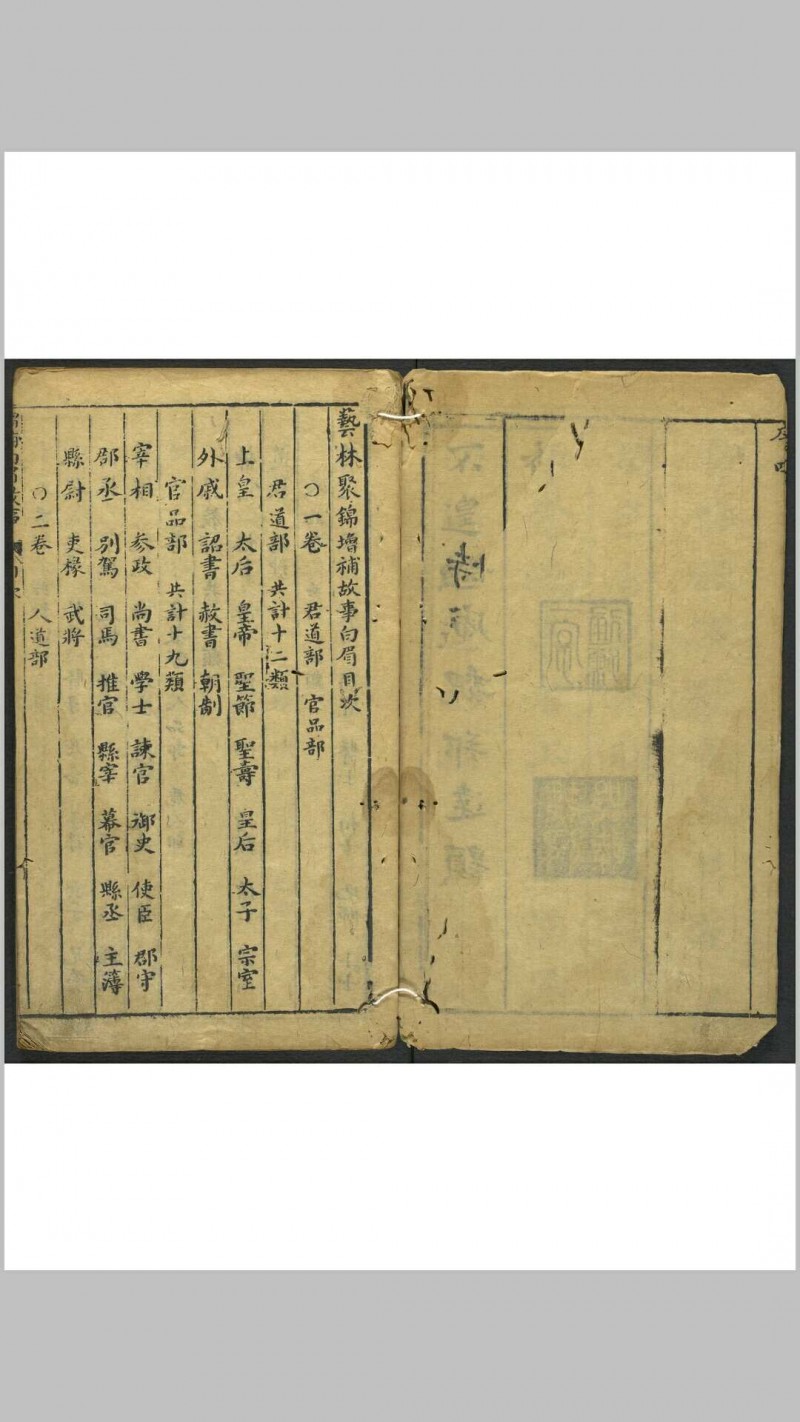 藝林聚錦增補故事白眉目次
○一卷 君道部 官品部
君道部 共計十二類
上皇 太后 皇帝 聖節 聖壽 皇后 太子 宗室
外戚 詔書 赦書 朝制
官品部 共計十九類
宰相 參政 尚書 學士 諫官 御史 使臣 郡守
郡丞 別駕 司馬 推官 縣宰 幕官 縣丞 主簿
縣尉 吏椽 武將
○二卷 人道部